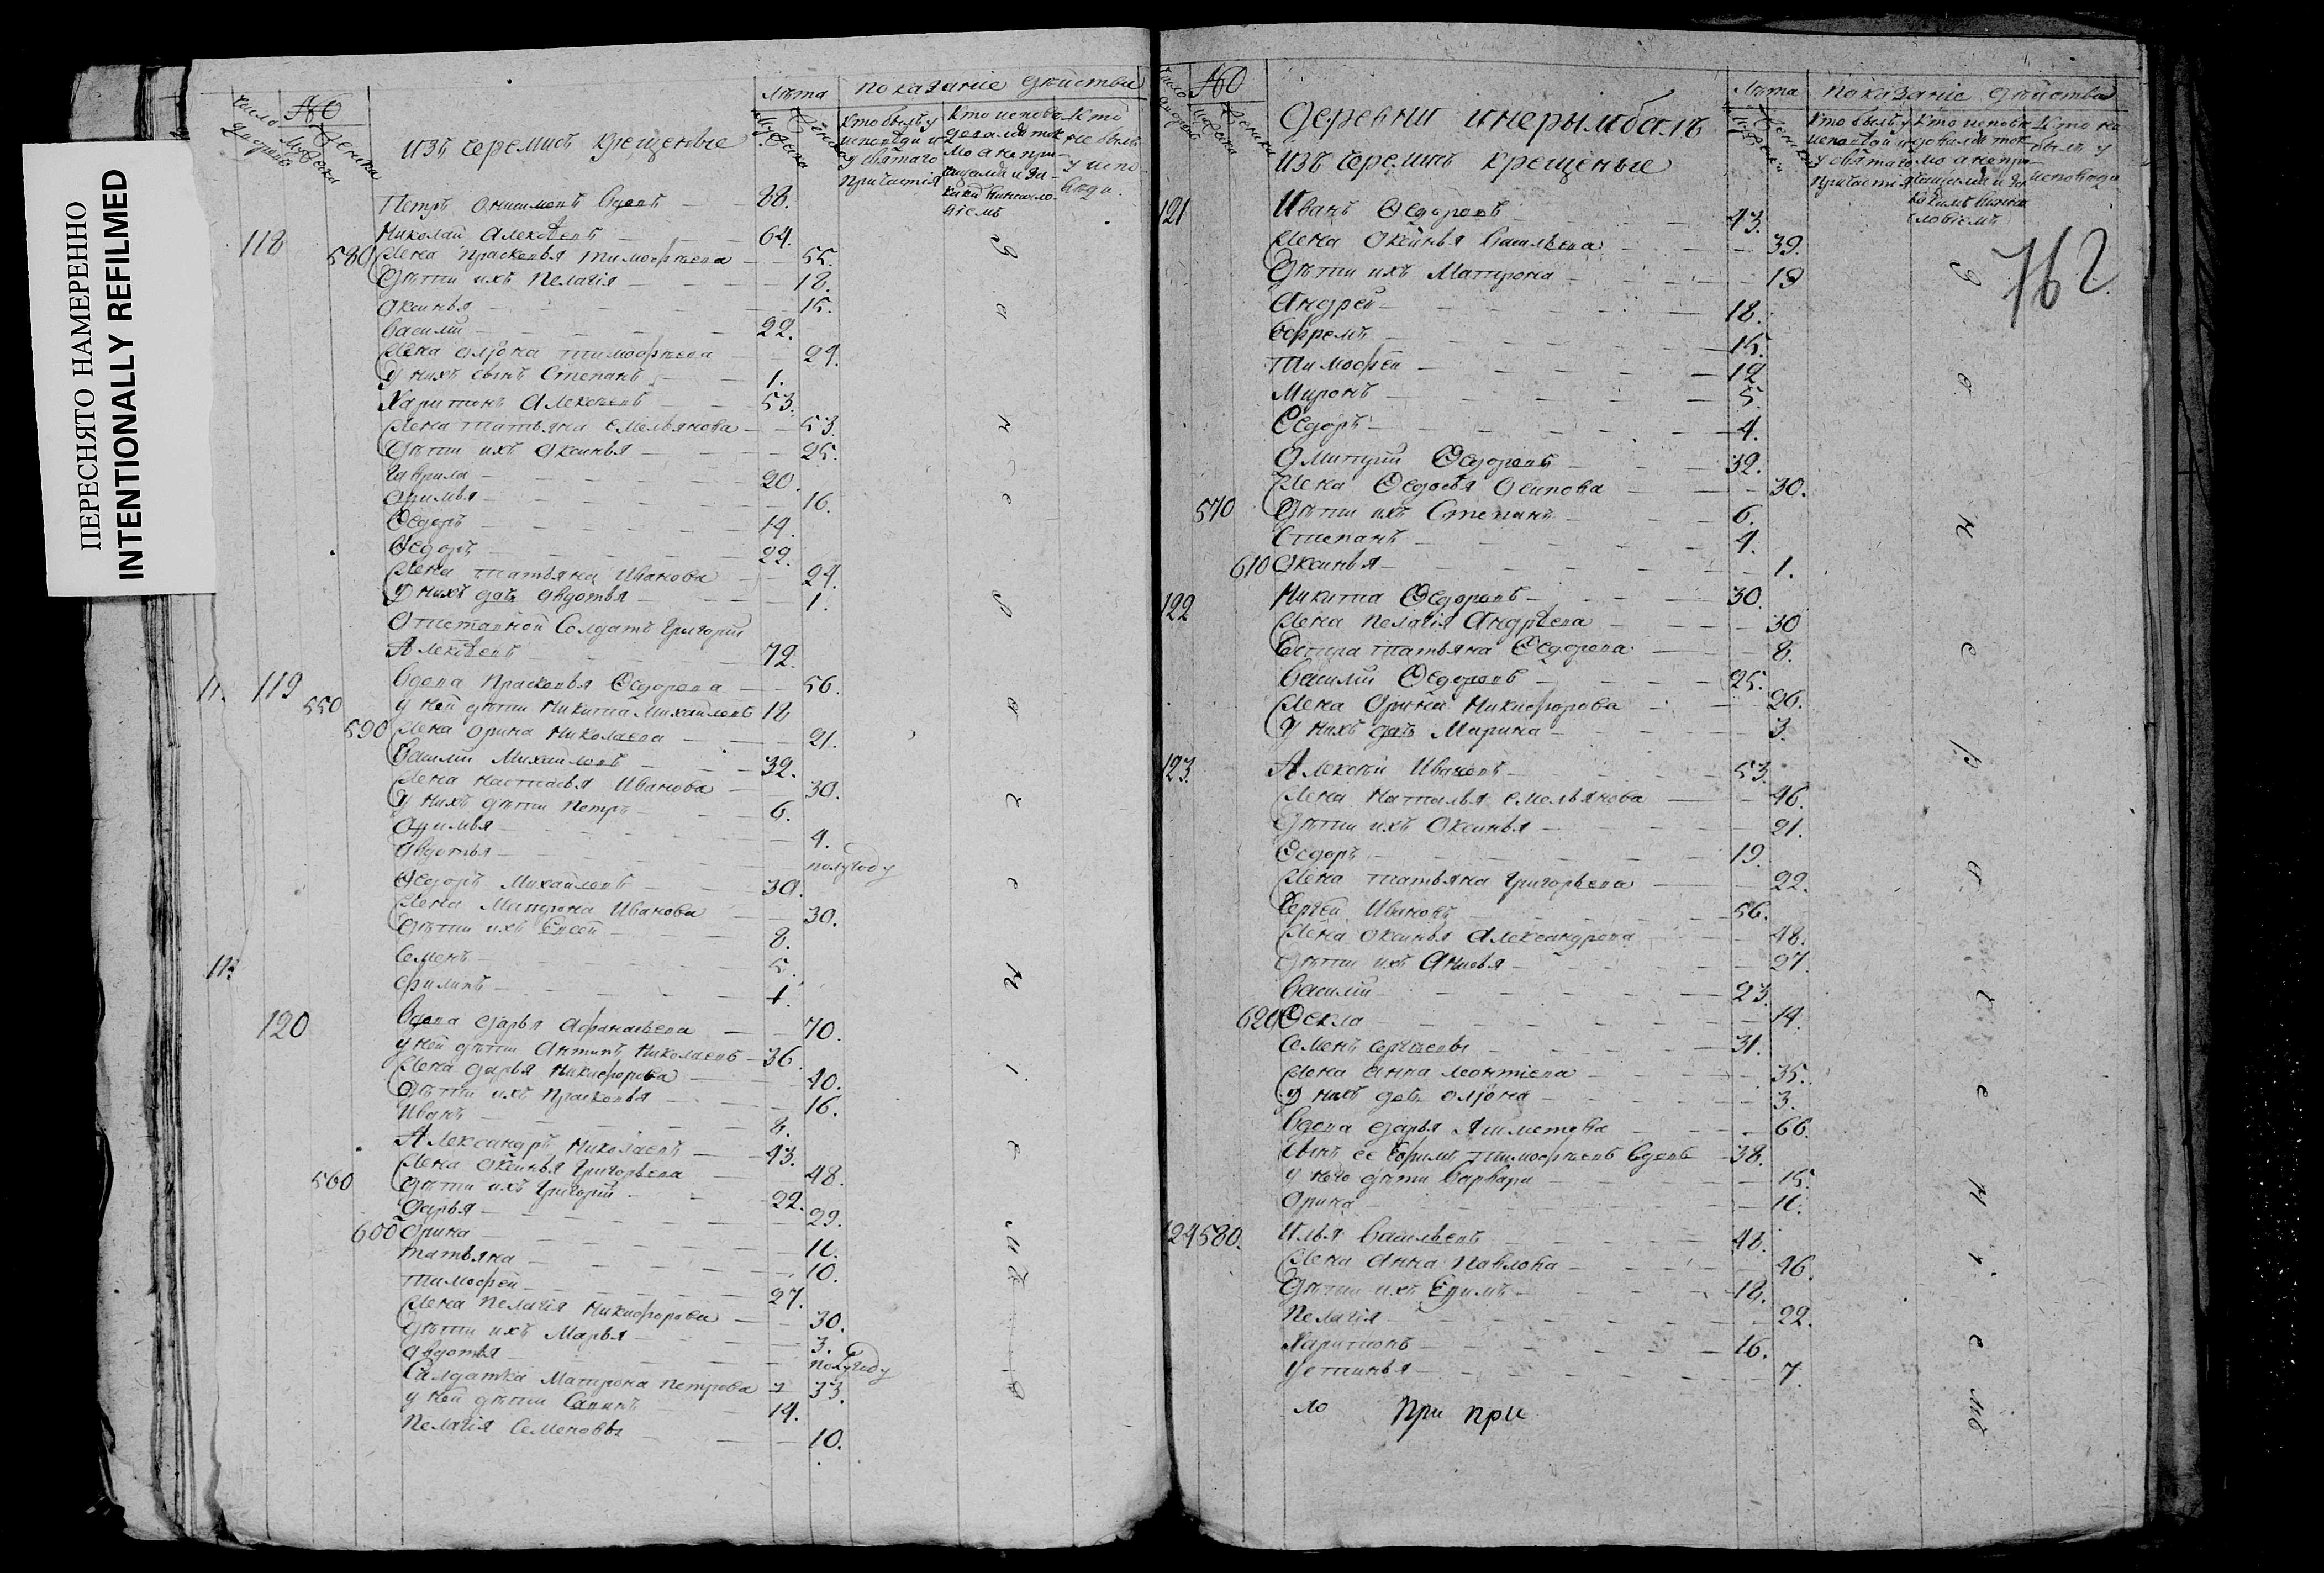 ПЕРЕСНЯТО НАМЕРЕННО
INTENTIONALLY REFILMED
число дворовъ
№
Мужска
Женска
изъ черемисъ крещеные
лѣта
Мужска
Женска
показаніе дѣйства
кто былъ у исповѣди и у святаго причастія
кто исповѣдался токмо а не причащался и за какимъ винословіемъ
кто не былъ у исповѣди
Петръ Онисимовъ вдовъ 88.
118 Николай Алексѣевъ 64.
580 Жена Прасковья Тимофѣева 55.
Дѣти ихъ Пелагія 18.
Оксинья 15.
Василій 22.
Жена Олена Тимофѣева 24.
у нихъ сынъ Степанъ 1.
Харитонъ Алексѣевъ 53.
Жена Татьяна Емельянова 53.
Дѣти ихъ Оксинья 25.
Гаврила 20.
Офимья 16.
Ѳедоръ 14.
Ѳедоръ 22.
Жена Татьяна Иванова 24.
у нихъ дочь Авдотья 1.
Отставной Солдатъ Григорій
Алексѣевъ 72.
11. 119 Вдова Прасковья Ѳедорова 56.
550 у ней дѣти Никита Михайловъ 18
590 Жена Орина Николаева 21.
Василій Михайловъ 32.
Жена Настасья Иванова 30.
у нихъ дѣти Петръ 6.
Офимья 4.
Авдотья полугоду
Ѳедоръ Михайловъ 30.
Жена Матрона Иванова 30.
Дѣти ихъ Евсей 8.
Семенъ 5.
Филипъ 1.
120 Вдова Дарья Афанасьева 70.
у ней дѣти Антипъ Николаевъ 36.
Жена Дарья Никифорова 40.
Дѣти ихъ Прасковья 16.
Иванъ 8.
Александръ Николаевъ 43.
Жена Оксинья Григорьева 48.
560 Дѣти ихъ Григорій 22.
Дарья 29.
600 Орина 11.
Татьяна 10.
Тимофей 27.
Жена Пелагія Никифорова 30.
Дѣти ихъ Марья 3.
Авдотья полугоду
Салдатка Матрона Петрова 33.
у ней дѣти Савинъ 14.
Пелагія Семеновы 10.
число дворовъ
№
Мужска
Женска
деревни инерымбалъ
изъ черемисъ крещеные
Лѣта
Мужска
Женска
показаніе дѣйства
кто былъ у исповѣди и у святаго причастія
кто исповѣдовался токмо а не причащался и за какимъ винословіемъ
кто не былъ у исповѣди
762
121 Иванъ Ѳедоровъ 43.
Жена Оксинья Васильева 39.
Дѣти ихъ Матрона 19
Андрей 18.
Ефремъ 15.
Тимофей 12
Миронъ 5.
Ѳедоръ 4.
Дмитрій Ѳедоровъ 32.
Жена Ѳедосья Осипова 30.
570 Дѣти ихъ Степанъ 6.
Степанъ 4.
610 Оксинья 1.
122 Никита Ѳедоровъ 30.
Жена Пелагія Андрѣева 30
Сестра Татьяна Ѳедорова 8.
Василій Ѳедоровъ 25.
Жена Орина Никифорова 26.
у нихъ дочь Марина 3.
123. Алексѣй Ивановъ 53.
Жена Наталья Емельянова 46.
Дѣти ихъ Оксинья 21.
Ѳедоръ 19.
Жена Татьяна Григорьева 22.
Сергѣй Ивановъ 56.
Жена Оксинья Александрова 48.
Дѣти ихъ Анисья 27.
Василій 23.
620 Ѳекла 14.
Семенъ Сергѣевъ 31.
Жена Анна Леонтіева 35.
у нихъ дочь Олена 3.
Вдова Дарья 66.
Сынъ ее Ефимъ Тимофѣевъ вдовъ 38.
у него дѣти Варвара 15.
Орина 11.
124 580. Илья Васильевъ 48.
Жена Анна Павлова 46.
Дѣти ихъ Ефимъ 18.
Пелагія 22.
Харитонъ 16.
Устинья 7.
ло при при